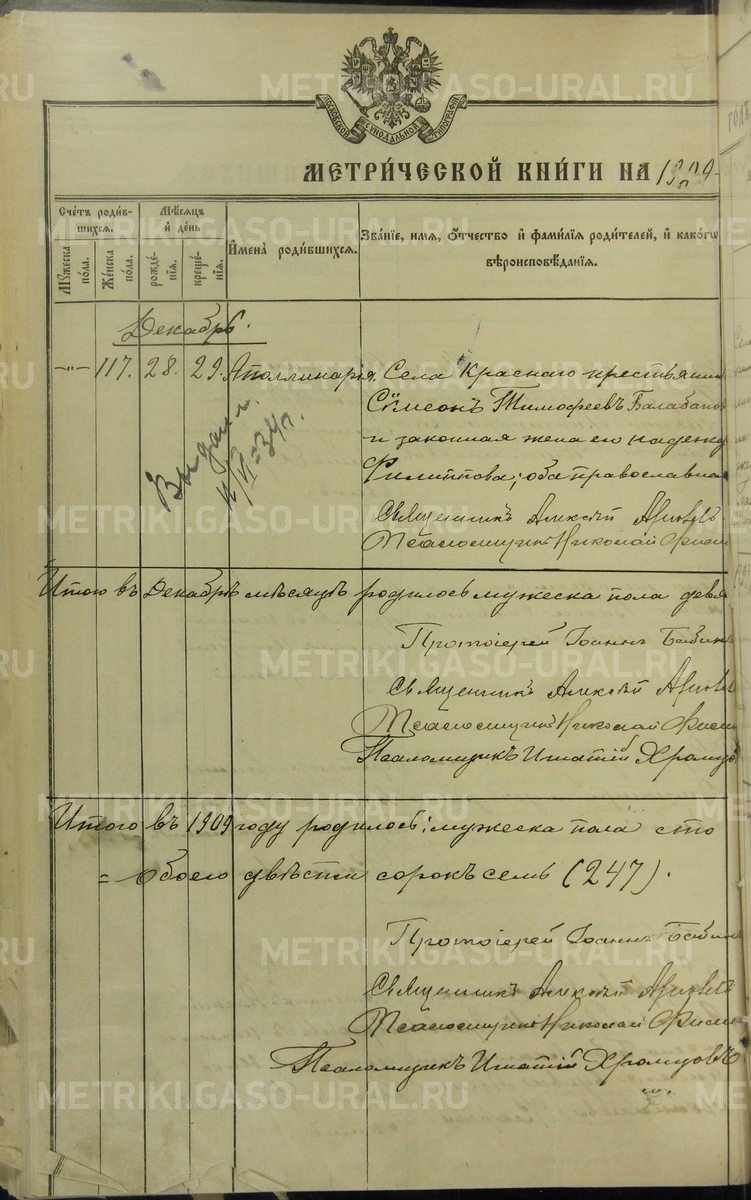 МОСКОВСКОЙ СѴНОДАЛЬНОЙ ТИПОГРАФІИ
МЕТРИ́ЧЕСКОЙ КНИ́ГИ НА 1909
Сче́тъ роди́в-
шихся.
Мѣ́сяцъ
и҆ де́нь
И҆мена̀ роди́вшихся.
Зва́нїе, и҆мя, ѻ҆́тчество и҆ фами́лїя роди́телей, и҆ како́гѡ
вѣроисповѣ́данїя.
Му́жеска
по́ла.
Же́нска
по́ла.
рожде́-
нїя.
креще́-
нїя.
Декабрь.
-"- 117. 28. 29. Аполлинарія. Села Краснаго крестьянин
Сѵмеонъ Тимофеевъ Балабанов
и законная жена его Надежд
Филиппова; оба православна
Выдан
Священникъ Алексѣй
Псаломщикъ Николай
Итого въ Декабрѣ мѣсяцѣ родилось мужеска пола девя
Протоіерей Іоаннъ
Священникъ Алексѣй
Псаломщикъ Николай
Псаломщикъ Игнатій Хромцов
Итого въ 1909 году родилось: мужеска пола сто
= Обоего двѣсти сорокъ семь (247).
Протоіерей Іоаннъ
Священникъ Алексѣй
Псаломщикъ Николай
Псаломщикъ Игнатій Хромцовъ
METRIKI.GASO-URAL.RU